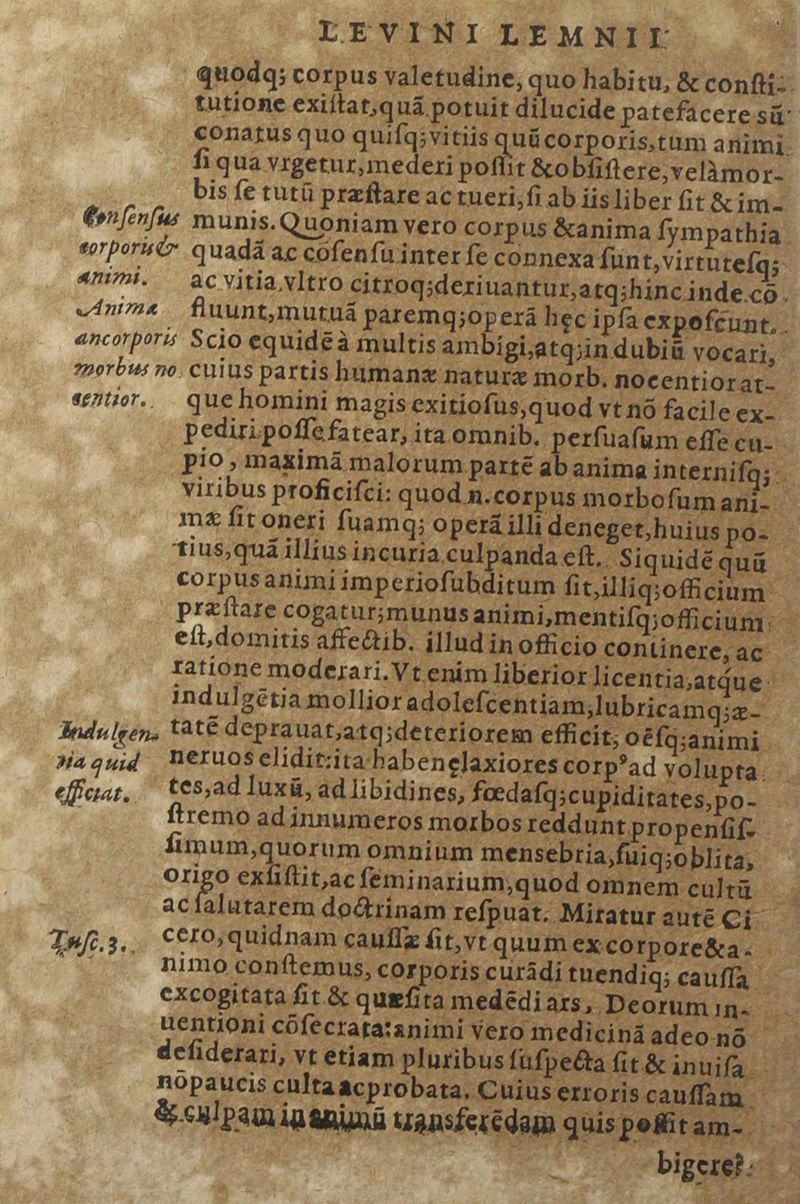 LEVINI LEMNII
quodq; corpus valetudine, quo habitu, & conſti-
tutione exiſtat, quã potuit dilucide patefacere sũ
conatus quo quiſq; vitiis quũ corporis, tum animi
ſi qua vrgetur, mederi poſſit & obſiſtere, vel à mor-
bis ſe tutũ præſtare ac tueri, ſi ab iis liber ſit & im-
munis. Quoniam vero corpus & anima ſympathia
quadã ac cõſenſu inter ſe connexa ſunt, virtuteſq;
ac vitia vltro citroq; deriuantur, atq; hinc inde cõ
fluunt, mutuã paremq; operã hęc ipſa expoſcunt.
Scio equidẽ à multis ambigi, atq; in dubiũ vocari,
cuius partis humanæ naturæ morb. nocentior at-
que homini magis exitioſus, quod vt nõ facile ex-
pediri poſſe fatear, ita omnib. perſuaſum eſſe cu-
pio, maximã malorum partẽ ab anima interniſq;
viribus proficiſci: quod n. corpus morboſum ani-
mæ ſit oneri ſuamq; operã illi deneget, huius po-
tius, quã illius incuria culpanda eſt. Siquidẽ quũ
corpus animi imperio ſubditum ſit, illiq; officium
præſtare cogatur; munus animi, mentiſq; officium
eſt, domitis affectib. illud in officio continere, ac
ratione moderari. Vt enim liberior licentia, atque
indulgẽtia mollior adoleſcentiam, lubricamq; æ-
tatẽ deprauat, atq; deteriorem efficit, oẽſq; animi
neruos elidit: ita habenę laxiores corpꝰ ad volupta
tes, ad luxũ, ad libidines, fœdaſq; cupiditates, po-
ſtremo ad innumeros morbos reddunt propenſiſ-
ſimum, quorum omnium mens ebria, ſuiq; oblita,
origo exſiſtit, ac ſeminarium, quod omnem cultũ
ac ſalutarem doctrinam reſpuat. Miratur autẽ Ci
cero, quidnam cauſſæ ſit, vt quum ex corpore & a-
nimo conſtemus, corporis curãdi tuendiq; cauſſa
excogitata ſit & quæſita medẽdi ars, Deorum in-
uentioni cõſecrata: animi vero medicinã adeo nõ
deſiderari, vt etiam pluribus ſuſpecta ſit & inuiſa
nõ paucis culta ac probata. Cuius erroris cauſſam
& culpam in animũ transferẽdam quis poſſit am-
bigere?
Conſenſus
corporis &
animi.
Anima
an corporis
morbus no
centior.
Indulgen-
tia quid
efficiat.
Tuſc. 3.